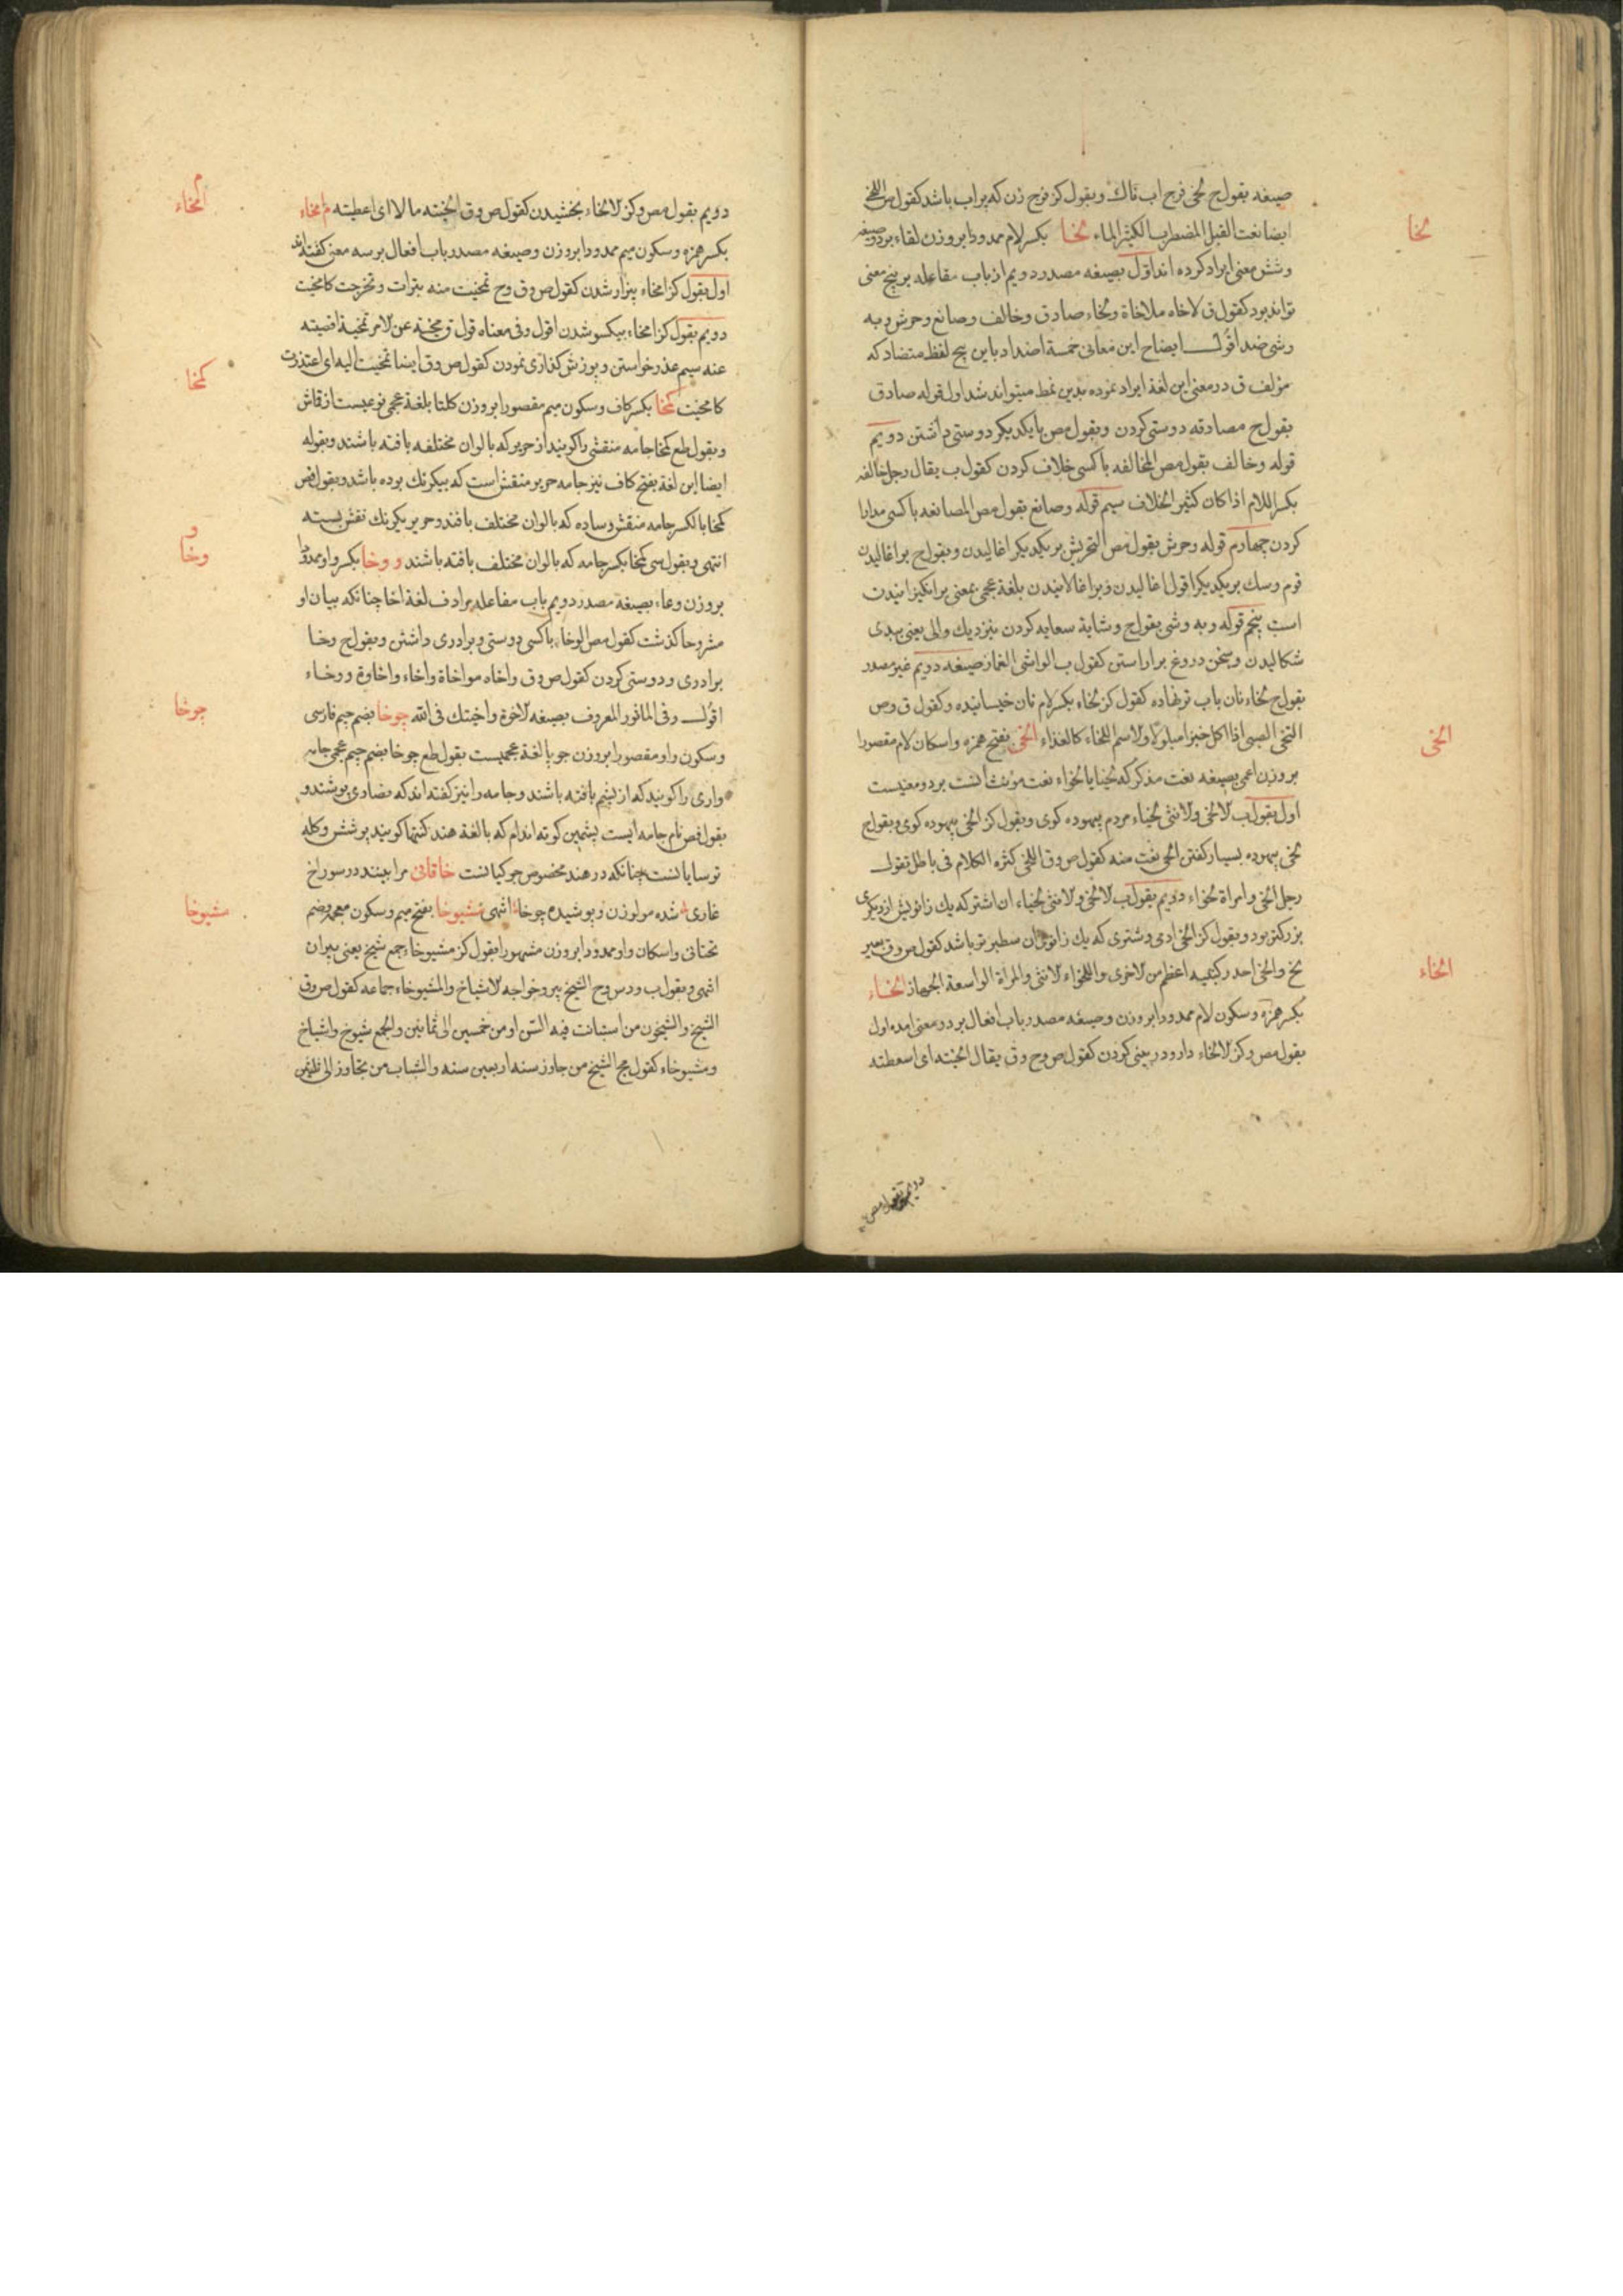 صیغه بقول ج لخی فرج اب ناك وبقول كز فرج زن كه پر اب باشد كقول ص اللخی
لخا
ایضا نعت القبل المضطرب الكثیر الماء لخا بكسر لام ممدودا بروزن لقاء بر دو صیغه
وشش معنی ایراد كرده اند اول بصیغه مصدر دویم از باب مفاعله بر پنج معنی
تواند بود كقول ق لاخاه ملاخاة ولخاء صادق وخالف وصانع وحرش وبه
وشی ضد اقول ایضاح این معانی خمسة اضداد باین پنج لفظ متضاد كه
مؤلف ق در معنی این لغة ایراد نموده بدین نمط میتواند شد اول قوله صادق
بقول ج مصادقه دوستی كردن وبقول مص بایكدیكر دوستی داشتن دویم
قوله وخالف بقول مص المخالفه باكسی خلاف كردن كقول ب یقال رجل خالفه
بكسر اللام اذا كان كثیر الخلاف سیم قوله وصانع بقول مص المصانعه باكسی مدارا
كردن چهارم قوله وحرش بقول مص التحریش بریكدیكر اغالیدن وبقول ج بر اغالیدن
قوم وسك بریكدیكر اقول اغالیدن وبر اغالانیدن بلغة عجمی بمعنی بر انكیزانیدن
است پنجم قوله وبه وشی بقول ج وشایة سعایه كردن بنزدیك والی یعنی ببدی
شكالیدن وسخن دروغ بر اراستن كقول ب الواشی الغماز صیغه دویم غیر مصدر
بقول ج لخاء نان باب تر نهاده كقول كز لخاء بكسر لام نان خیسانیده وكقول ق وص
الخی
التخی الصبی اذا اكل خبزا مبلولا والاسم اللخاء كالغذاء الخی بفتح همزه واسكان لام مقصورا
بروزن اعمی بصیغه نعت مذكر كه لخیا یا لخواء نعت مؤنث انست بر دو معنیست
اول بقول ب الالخی والانثی لخیاء مردم بیهوده كوی وبقول كز الخی بیهوده كوی وبقول ج
لخی بیهوده بسیار كفتن الخی نعت منه كقول ص وق اللخی كثرة الكلام فی باطل تقول
رجل الخی وامراة لخواء دویم بقول ب الالخی والانثی لخیاء ان اشتر كه یك زانویش از دیكری
بزركتر بود وبقول كز الخی ادمی وشتری كه یك زانوی ان سطبر تر باشد كقول ص وق بعیر
الخاء
لخ والخی احد ركبتیه اعظم من الاخری واللخواء الانثی والمرأة الواسعة الجهاز الخاء
بكسر همزه وسكون لام ممدودا بروزن وصیغه مصدر باب افعال بر دو معنی امده اول
بقول مص وكز الالخاء دارو در بینی كردن كقول ص وح وق یقال الخیته ای اسعطته
دویم بقول مص
امخاء
دویم بقول مص وكز الالخاء بخشیدن كقول ص وق الخیته مالا ای اعطیته امخاء
بكسر همزه وسكون میم ممدودا بروزن وصیغه مصدر باب افعال بر سه معنی كفته اند
اول بقول كز امخاء بیزار شدن كقول ص وق وح تمخیت منه تبرات وتحرجت كامخیت
دویم بقول كز امخاء بیكسو شدن اقول وفی معناه قول ق ومخیته عن الامر تمخیة اقصیته
عنه سیم عذر خواستن وپوزش كذاری نمودن كقول ص وق ایضا تمخیت الیه ای اعتذرت
كمخا
كامخیت كمخا بكسر كاف وسكون میم مقصورا بروزن كلتا بلغة عجمی نوعیست از قماش
وبقول طع كمخا جامه منقشی را كویند از حریر كه بالوان مختلفه بافته باشند وبقوله
ایضا این لغة بفتح كاف نیز جامه حریر منقش است كه بیكرنك بوده باشد وبقول فص
كمخا بالكسر جامه منقش وساده كه بالوان مختلف بافند وحریر یكرنك نقش بسته
و وخا
انتهی وبقول سی كمخا بكسر جامه كه بالوان مختلف بافته باشند و وخا بكسر واو ممدودا
بروزن وعاء بصیغه مصدر دویم باب مفاعله مرادف لغة اخا چنانكه بیان او
مشروحا كذشت كقول مص الوخاء باكسی دوستی وبرادری داشتن وبقول ج وخا
برادری ودوستی كردن كقول ص وق واخاه مواخاة واخاء واخاوة ووخاء
چوخا
اقول وفی الماثور المعروف بصیغه الاخوة واخیتك فی الله چوخا بضم جیم فارسی
وسكون واو مقصورا بروزن جویا لغة عجمیست بقول طع چوخا بضم جیم عجمی جامه
واری را كویند كه از پشم بافته باشند وجامه را نیز كفته اند كه نصاری پوشند و
بقول فص نام جامه ایست پشمین كوته اندام كه بالغة هند كنتها كویند پوشش وكله
ترسایانست چنانكه در هند مخصوص جوكیانست خاقانی مرا بینند در سوراخ
مشیوخا
غاری شده مولوزن وپوشیده چوخا انتهی مشیوخا بفتح میم وسكون معجمه وضم
تحتانی واسكان واو ممدودا بروزن مشهورا بقول كز مشیوخاء جمع شیخ یعنی پیران
انتهی وبقول ب ودس وح الشیخ پیر وخواجه الاشیاخ والمشیوخاء جماعه كقول ص وق
الشیخ والشیخون من استبانت فیه السن او من خمسین الی ثمانین والجمع شیوخ واشیاخ
ومشیوخاء كقول مج الشیخ من جاوز سنه اربعین سنه والشباب من تجاوز الی ثلثین